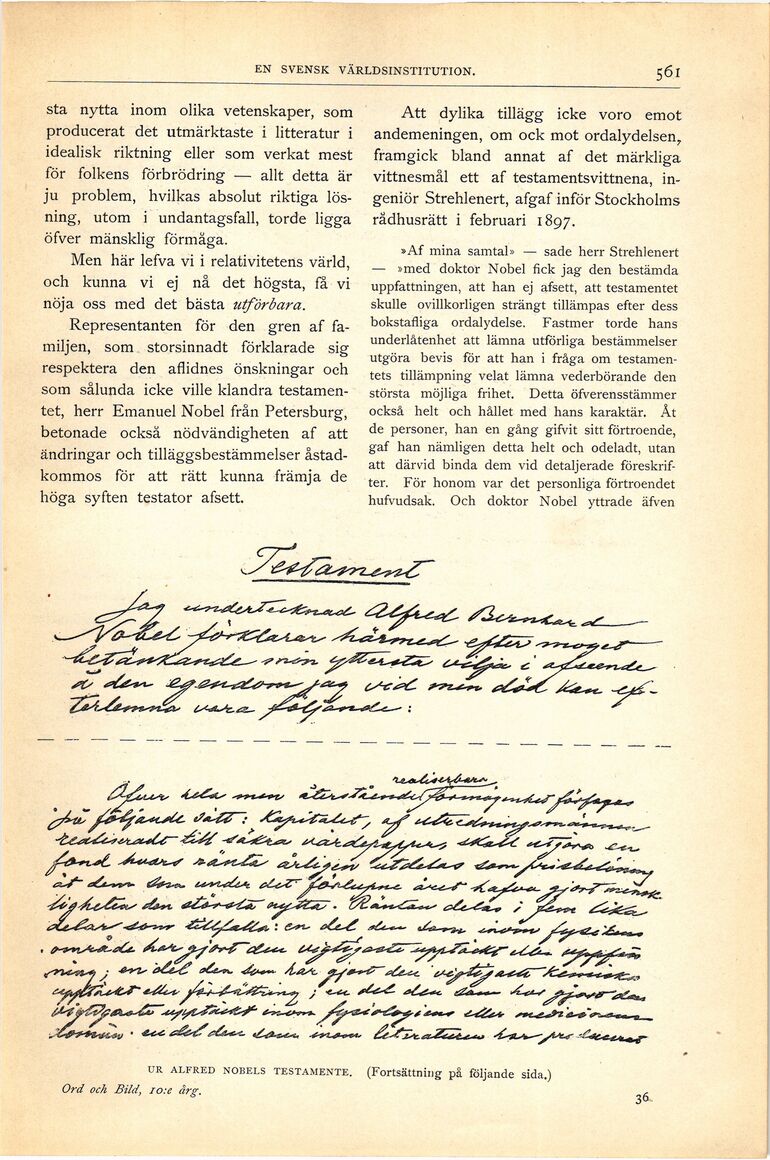 EN SVENSK VÄRLDSINSTITUTION.
561
sta nytta inom olika vetenskaper, som
producerat det utmärktaste i litteratur i
idealisk riktning eller som verkat mest
för folkens förbrödring — allt detta är
ju problem, hvilkas absolut riktiga lös-
ning, utom i undantagsfall, torde ligga
öfver mänsklig förmåga.
Men här lefva vi i relativitetens värld,
och kunna vi ej nå det högsta, få vi
nöja oss med det bästa utförbara.
Representanten för den gren af fa-
miljen, som storsinnadt förklarade sig
respektera den aflidnes önskningar och
som sålunda icke ville klandra testamen-
tet, herr Emanuel Nobel från Petersburg,
betonade också nödvändigheten af att
ändringar och tilläggsbestämmelser åstad-
kommos för att rätt kunna främja de
höga syften testator afsett.
Att dylika tillägg icke voro emot
andemeningen, om ock mot ordalydelsen,
framgick bland annat af det märkliga
vittnesmål ett af testamentsvittnena, in-
geniör Strehlenert, afgaf inför Stockholms
rådhusrätt i februari 1897.
»Af mina samtal» — sade herr Strehlenert
— »med doktor Nobel fick jag den bestämda
uppfattningen, att han ej afsett, att testamentet
skulle ovillkorligen strängt tillämpas efter dess
bokstafliga ordalydelse. Fastmer torde hans
underlåtenhet att lämna utförliga bestämmelser
utgöra bevis för att han i fråga om testamen-
tets tillämpning velat lämna vederbörande den
största möjliga frihet. Detta öfverensstämmer
också helt och hållet med hans karaktär. Åt
de personer, han en gång gifvit sitt förtroende,
gaf han nämligen detta helt och odeladt, utan
att därvid binda dem vid detaljerade föreskrif-
ter. För honom var det personliga förtroendet
hufvudsak. Och doktor Nobel yttrade äfven
Testament
Jag undertecknad Alfred Bernhard
Nobel förklarar härmed efter moget
betänkande min yttersta vilja i afseende
å den egendom jag vid min död kan ef-
terlemna vara följande:
realiserbara
Öfver hela min återstående förmögenhet förfogas
på följande sätt: Kapitalet, af utredningsmännen
realiseradt till säkra värdepapper, skall utgöra en
fond hvars ränta årligen utdelas som prisbelöning
åt dem som under det förlupne året hafva gjort mensk-
ligheten den största nytta. Räntan delas i fem lika
delar som tillfalla: en del den som inom fysikens
område har gjort den vigtigaste upptäckt eller uppfin
ning; en del den som har gjort den vigtigaste kemiska
upptäckt eller förbättring; en del den som har gjort den
vigtigaste upptäckt inom fysiologiens eller medicinens
domän; en del den som inom literaturen har producerat
UR ALFRED NOBELS TESTAMENTE. (Fortsättning på följande sida.)
Ord och Bild, 10:e årg.
36